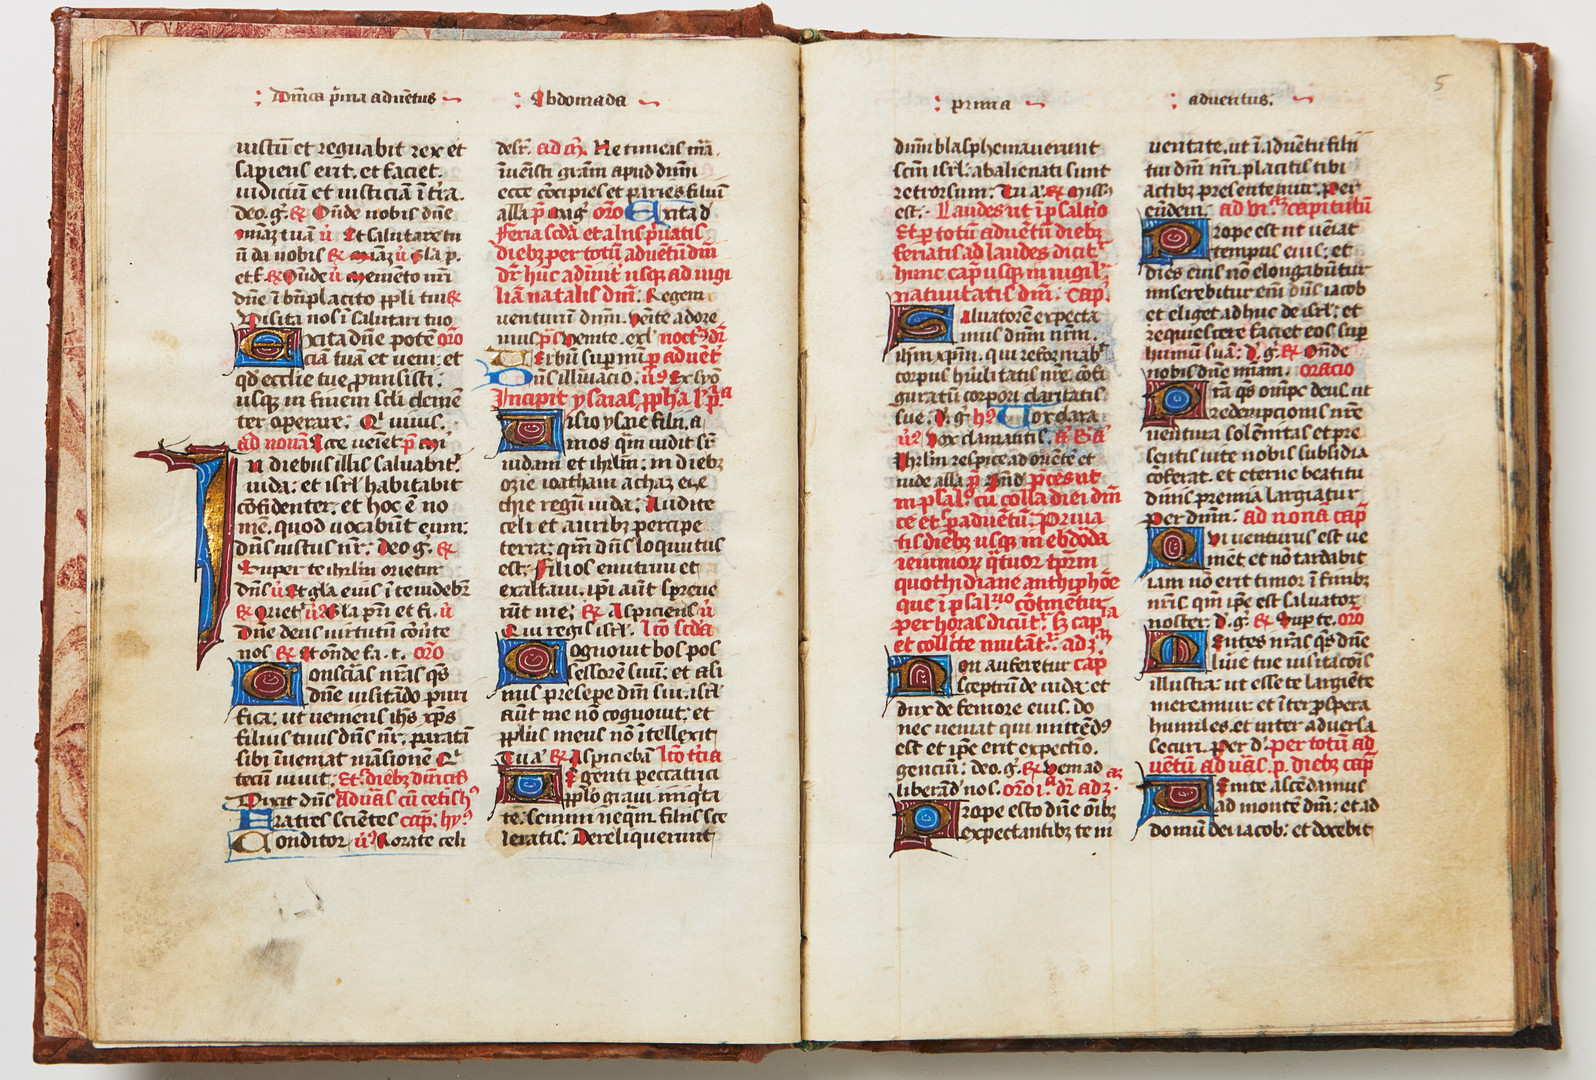 Dñica p̃ma aduẽtus
Ebdomada
iustũ et regnabit rex et
sapiens erit. et faciet
iudiciũ et iusticiã ĩ tr̃a.
deo. g̃. ℞ Oñde nobis dñe
mĩaz tuã ũ Et salutare tu
ũ da nobis ℞ mĩaz ũ Gla p̃.
et f. ℞ Oñde ũ Memẽto nr̃i
dñe ĩ bñplacito ppl̃i tui ℞
Uisita nos ĩ salutari tuo
Excita dñe potẽ oro
ciã tuã et veni: et
qd̃ eccl̃ie tue promisisti:
usq̃ in finem scl̃i clemẽ
ter operare. Qi viuis.
ad nonã Ecce veiet p̃
In diebus illis saluabit᷑
iuda: et isrl̃ habitabit
cõfidenter: et hoc ẽ no
mẽ, quod vocabũt eum:
dñs iustus nr̃. deo g̃. ℞
Super te ihrl̃m orietur
dñs ũ Et gl̃a eius ĩ te uidebr̃
℞ Oriet᷑ ũ Gla pr̃i et fi. ũ
Dñe deus uirtutũ cõuerte
nos ℞ Et oñde fa. t. oro
Consciẽas nr̃as q̃s
dñe visitãdo puri
fica: ut veniens ihs xp̃s
filius tuus dñs nr̃. paratã
sibi ĩueniat mãsionẽ Qi
tecũ viuit: Et diebz dñicis
Dixit dñs Ad uãs cũ cetis
Fratres sciẽtes cap̃. hy᷑
Conditor ũ Rorate celi
desr̃. ad m̃. Ne timeas mã
ĩuenisti grãm apud dñm
ecce cõcipies et paries filiũ
alla p̃ Mag̃ oro Excita d̃
Feria scd̃a et aliis p̃uatis
diebz per totũ aduẽtũ dñi
dr̃ huc adinuit usq̃ ad uigi
liã natalis dñi. Regem
venturũ dñm. Venite adore
mus p̃s Venite. ext᷑ noct᷑ dr̃
Uerbũ supernũ p̃ aduẽt
Dñs illũiacio. ũ Ex syõ
Incipit ysaias ppha l᷑ pͣ
Uisio ysaye filii a
mos quã uidit sũ
iudam et ihrl̃m: in diebz
ozie ioathan achaz eze
chie regũ iuda. Audite
celi et auribz percipe
terra: qm̃ dñs loquutus
est: filios enutriui et
exaltaui. ip̃i aũt spreue
rũt me: ℞ Aspiciens ũ
Qui regis isrl̃. lc̃o scd̃a
Cognouit bos pos
sessorẽ suũ: et asi
nus presepe dñi sui. isrl̃
aũt me nõ cognouit: et
ppl̃us meus nõ ĩtellexit
Tu a᷑ ℞ Aspiciebã lc̃o t̃cia
Ue genti peccatrici
ppl̃o graui iniq̃ta
te: semini neq̃m. filiis sce
leratis: Dereliquerunt
prima
aduentus.
5
dñm blasphemauerunt
scm̃ isrl̃: abalienati sunt
retrorsum: Tu a᷑ ℞ Missus
est: Laudes ut ĩ p̃saltio
Et p̃ totũ aduẽtũ diebz
ferialis ad laudes dicit᷑
hunc cap̃ usq̃ in uigil᷑
natiuitatis dñi. Cap̃.
Saluatorem expecta
mus dñm nr̃m
ihm xp̃m. qui reformab᷑
corpus hũilitatis nr̃e: cõfi
guratũ corpori claritatis
sue. D. g̃. hỹ Uox clara
ũ Vox clamantis. a Bã
Ihrl̃m respice ad oriẽte et
uide alla p̃ Bñd p̃ces ut
in psal᷑. cũ coll̃a diei dñi
ce et p̃ aduẽtũ. Priua
tis diebz usq̃ in ebdõda
ieiuniorz q̃tuor tp̃rm
quothidiane anthiphõe
que ĩ psal᷑rio cõtinetur
per horas dicũt᷑. Sz cap̃la
et coll̃cte mutãt᷑. ad 3
Non auferetur cap̃
sceptrũ de iuda: et
dux de femore eius. do
nec ueniat qui mittẽdꝰ
est et ip̃e erit expectio.
genciũ: deo. g̃. ℞ Veni ad
liberãd nos. oro
Prope esto dñe oĩbz
expectantibz te in
ueritate. ut ĩ aduẽtu filii
tui dñi nr̃i. placitis tibi
actibz presentemur. Per
eũdem. ad vi. capitulũ
Prope est ut ueniat
tempus eius: et
dies eius nõ elongabũtur
miserebitur eni dñs iacob
et eliget adhuc de isrl̃: et
requiescere faciet eos sup̃
humũ suã: d. g̃. ℞ Oñde
nobis dñe miam. oracio
Pra q̃s omp̃s deus ut
redempcionis nr̃e
uentura solẽnitas et pre
sentis uite nobis subsidia
cõferat. et eterne beatitu
dinis premia largiatur
Per dñm: ad nonã cap̃
Qui uenturus est ue
niet et nõ tardabit
iam nõ erit timor ĩ finibz
nr̃is. qm̃ ip̃e est saluator
noster. d. g̃. ℞ Sup te. oro
Mentes nr̃as q̃s dñe
lũie tue uisitacõis
illustra: ut esse te largiẽte
mereamur et ĩter pspera
humiles. et inter aduersa
securi. Per d᷑. per totũ ad
uẽtũ ad uãs p. diebz cap̃
Uenite ascẽdamus
ad montẽ dñi: et ad
domũ dei iacob: et docebit